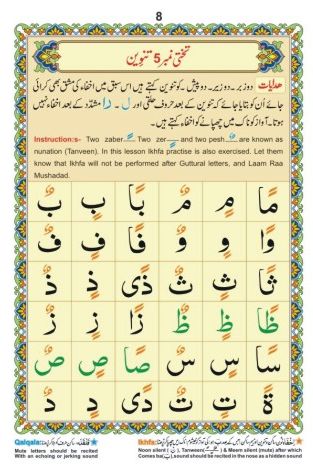 8
تختی نمبر 5 تنوین
ھدایات دو زبر۔ دو زیر۔ دو پیش۔ کو تنوین کہتے ہیں اس سبق میں اخفاء کی مشق بھی کرائی
جائے اُن کو بتایا جائے کہ تنوین کے بعد حروف حلقی اور ل۔ را مشدّد کے بعد اخفاء نہیں
ہوتا۔ آواز کو ناک میں چھپانے کو اخفاء کہتے ہیں۔
Instruction:s- Two zaber Two zer and two pesh are known as
nunation (Tanveen). In this lesson Ikhfa practise is also exercised. Let them
know that Ikhfa will not be performed after Guttural letters, and Laam Raa
Mushadad.
مًا مٍ مٌ بًا بٍ بٌ
وًا وٍ وٌ فًا فٍ فٌ
ثًا ثٍ ثٌ ذًی ذٍ ذٌ
ظًا ظٍ ظٌ زًا زٍ زٌ
سًا سٍ سٌ صًا صٍ صٌ
ةً تٍ تٌ دًی دٍ دٌ
Qalqala:
Mute letters should be recited
With an echoing or jerking sound
Ikhfa:
Noon silent (نْ), Tanween & Meem silent (mute) after which
Comes ba(ب), sound should be recited in the nose as a hidden sound